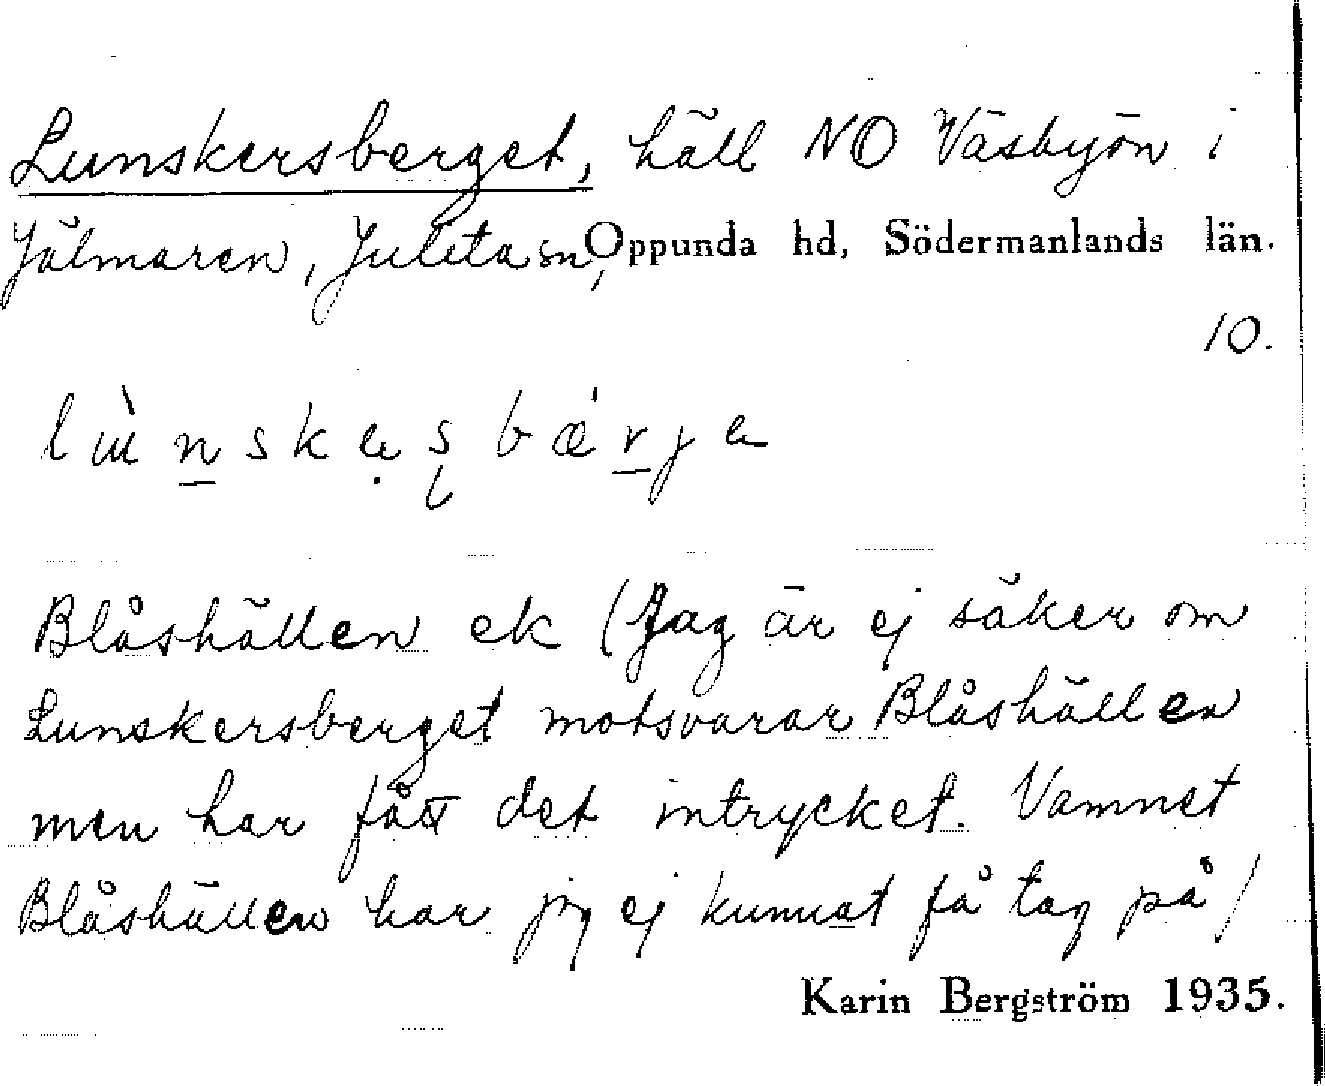 Lunskersberget, häll NO Väsbyön i
Jälmaren, Juleta sn, Oppunda hd, Södermanlands län.
10.
Blåshällen ek (Jag är ej säker om
Lunskersberget motsvarar Blåshällen
men har fått det intrycket. Namnet
Blåshällen har jag ej kunnat få tag på)
Karin Bergström 1935.